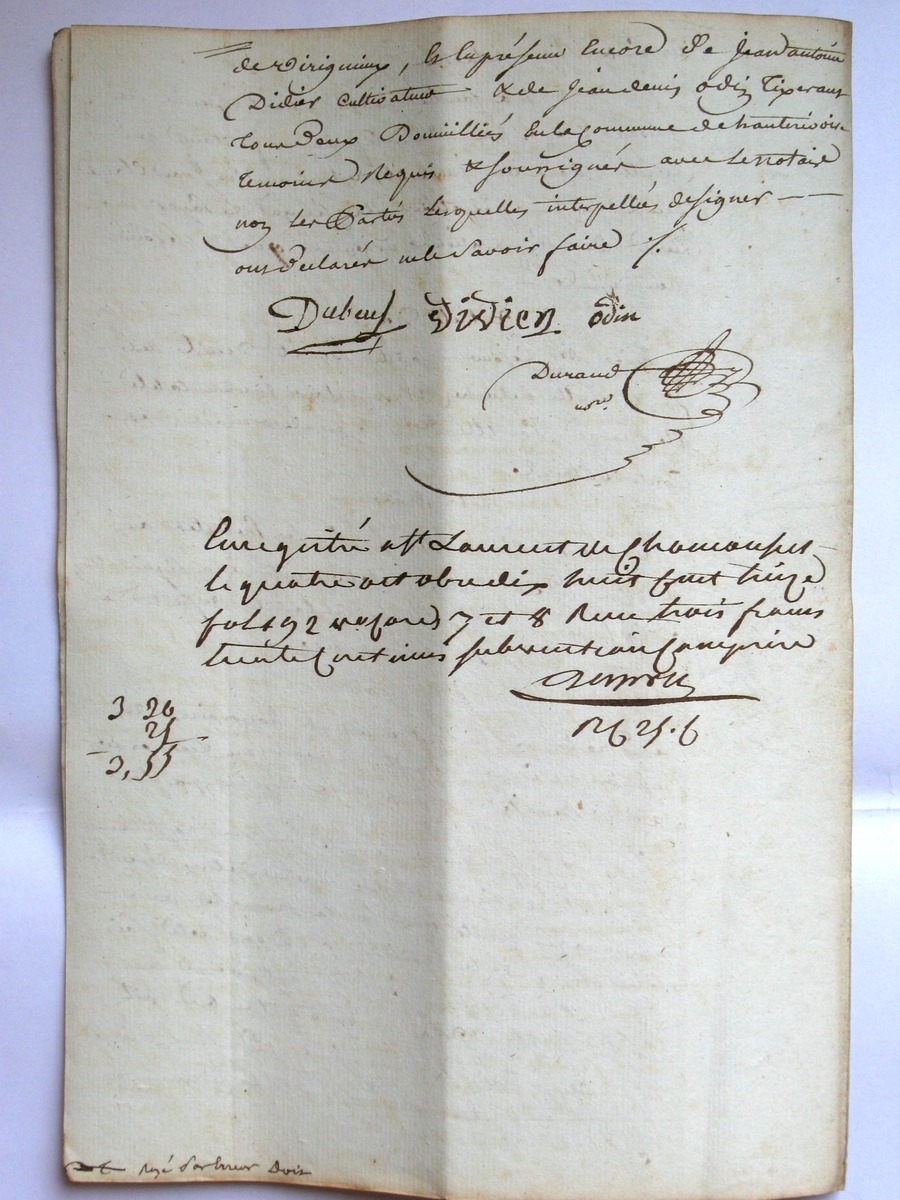 de Virignieux, Et En présence Encore de Jean antoine
Didier Cultivateur & de Jean denis odin Tixerant
Tous Deux Domiciliés En la Commune de hauterivoire
Temoins Requis & soussignés avec le notaire
non Les Parties Lesquelles interpellées de signer
ont declarées ne le Savoir faire ./.
Dubeuf Didier odin
Durand
nore
Enregistré a St Laurent de Chamousset
le quatre octobre dix huit Cent treize
fol 192 vo Cases 7 et 8 Reçu trois francs
trente Centimes subvention Comprise
R 6 25. 6
3 30
25
3,55
Rayé Par Erreur Dois